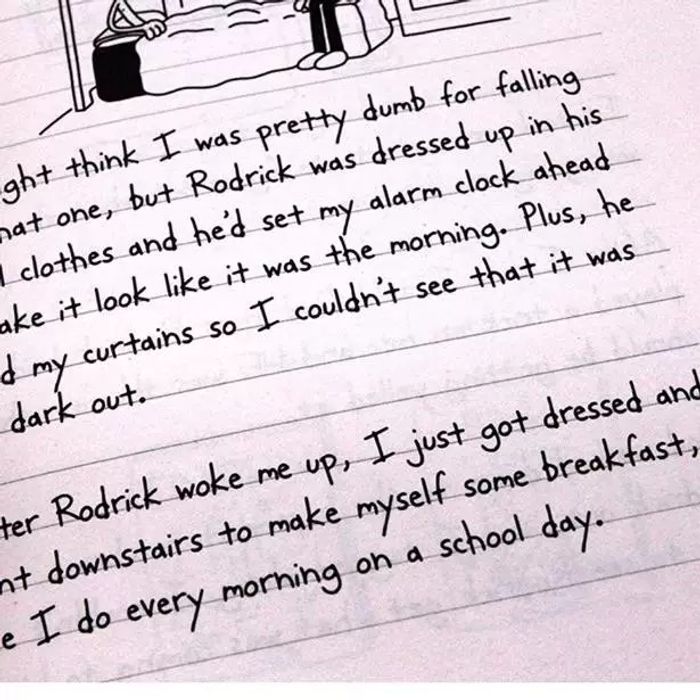 ght think I was pretty dumb for falling
hat one, but Rodrick was dressed up in his
l clothes and he'd set my alarm clock ahead
ake it look like it was the morning. Plus, he
d my curtains so I couldn't see that it was
dark out.
ter Rodrick woke me up, I just got dressed and
nt downstairs to make myself some breakfast,
e I do every morning on a school day.